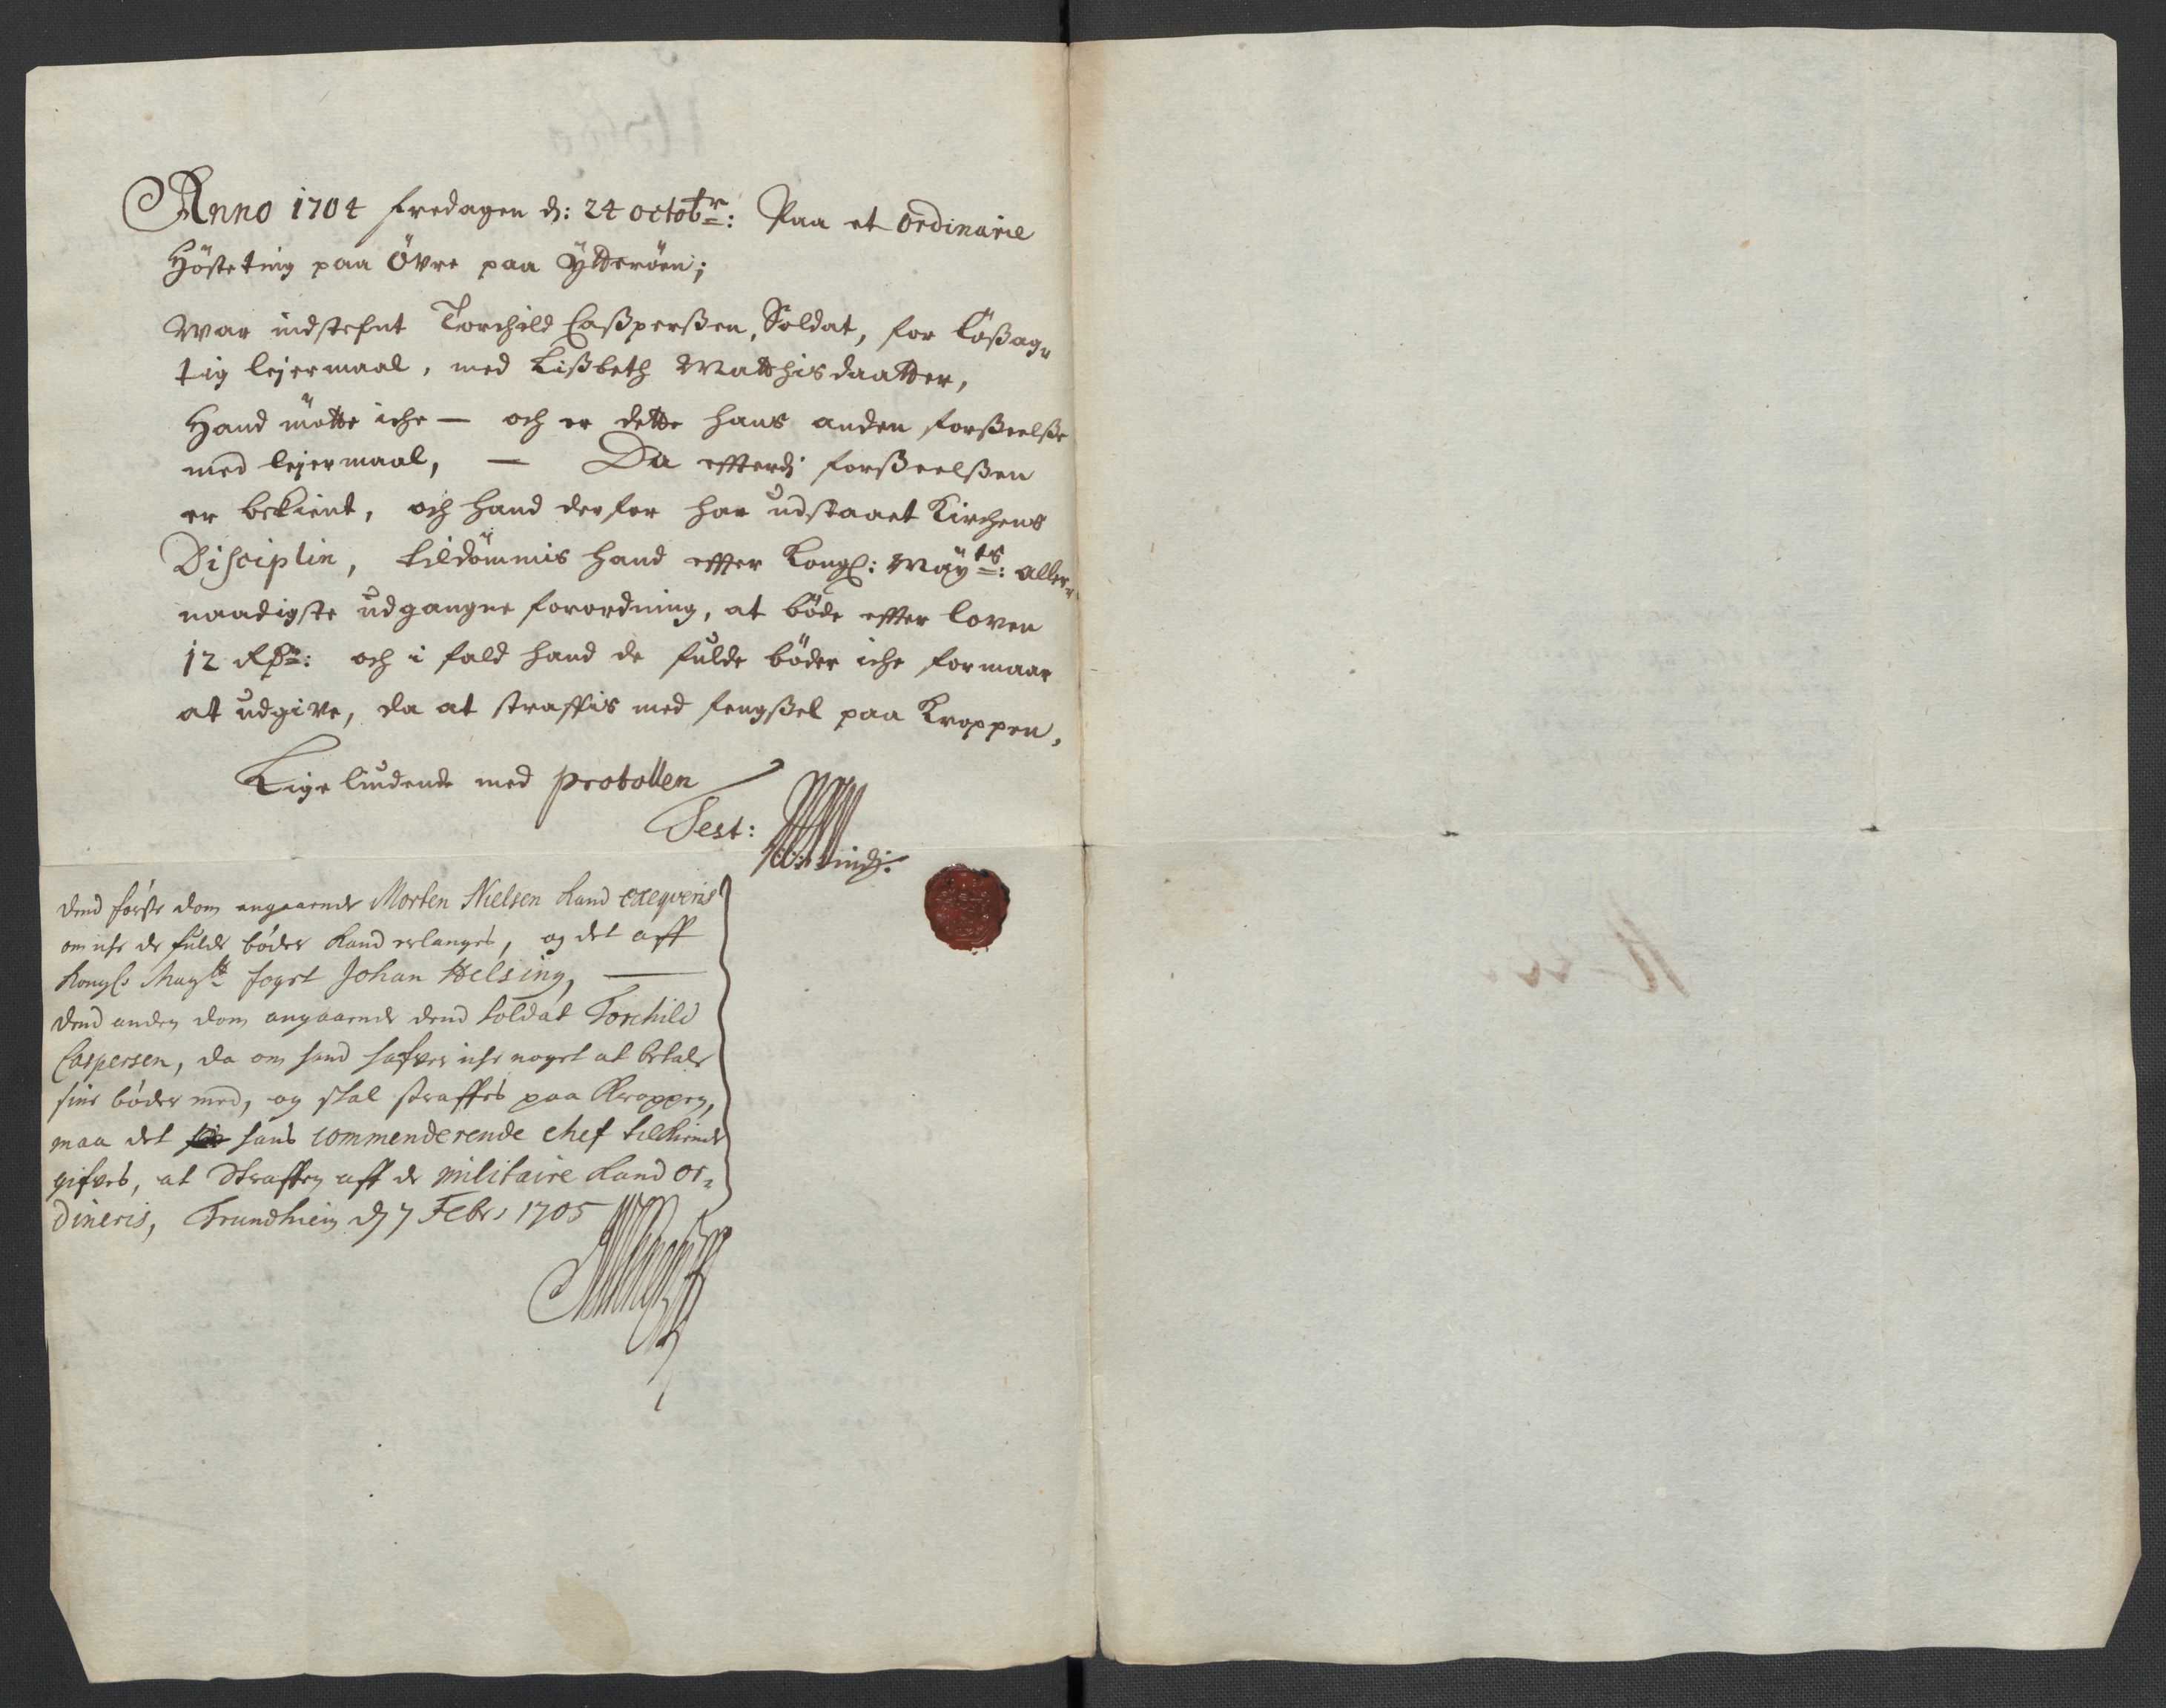 Anno 1704 fredagen d: 24 octobr: Paa et ordinarie
Hösteting paa Övre paa Ÿtteröen;
War indstefnt Torchild Casperßen, Soldat, for Lößag-
tig lejermaal, med Lißbeth Matthisdaatter,
Hand mötte iche — och er dette hans anden forßeelße
med lejermaal, — Da effterdj forßeelßen
er bekient, och hand derfor har udstaaet Kirchens
Disciplin, tildömmis hand effter Kongl: Maÿts: aller-
naadigste udgangne forordning, at böde effter loven
12 Rdr: och i fald hand de fulde böder iche formaar
at udgive, da at straffis med fengßel paa Kroppen,
Lige liudende med protollen
Test:
dend förste dom angaaende Morten Nielsen kand exeqveris
om iche de fulde böder kand erlanges, og det aff
Kongl: Maytz fogt Johan Helsing, —
dend anden dom angaaende dend soldat Torchild
Caspersen, da om hand hafver iche noget at betale
sine böder med, og skal straffes paa Kroppen,
maa det hans commenderende chef tilkiende
gifves, at Straffen aff de militaire kand or-
dineris, Trundhiem d 7 Febr: 1705